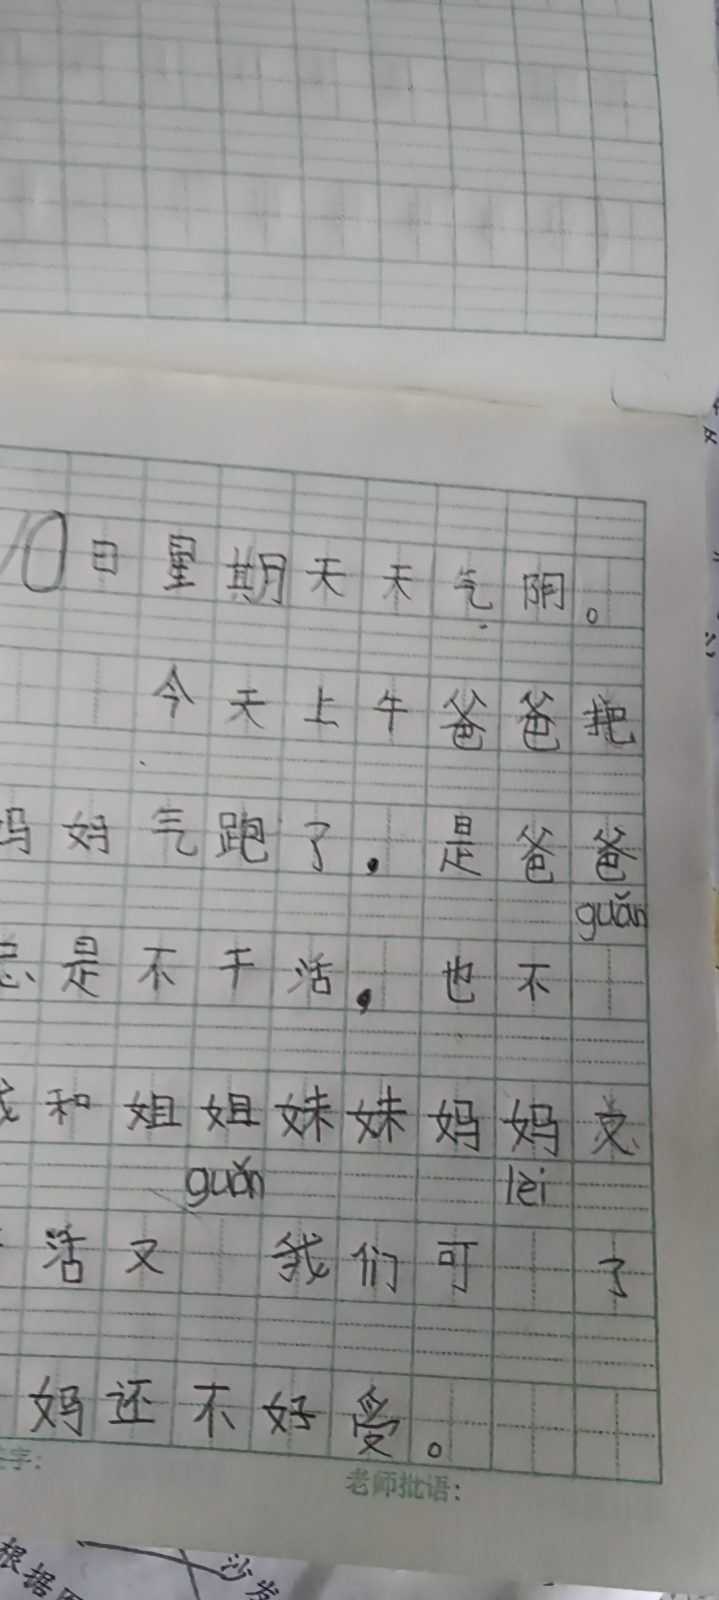 10日星期天天气阴。
今天上午爸爸把
妈妈气跑了。是爸爸
guǎn
总是不干活。也不
我和姐姐妹妹妈妈又
guǎn lèi
活又 我们可 了
妈还不好受。
签字: 老师批语:
根据
沙发